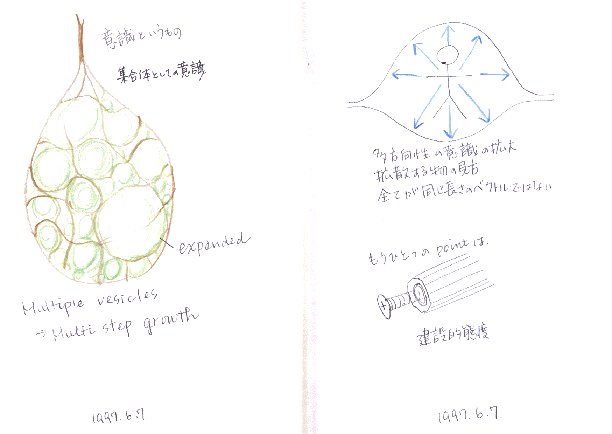 意識というもの
集合体としての意識
expanded
Multiple vesicles
→ Multi step growth
1997.6.7
多方向性の意識の拡大
拡散する物の見方
全てが同じ長さのベクトルではない
もうひとつのpointは
建設的態度
1997.6.7